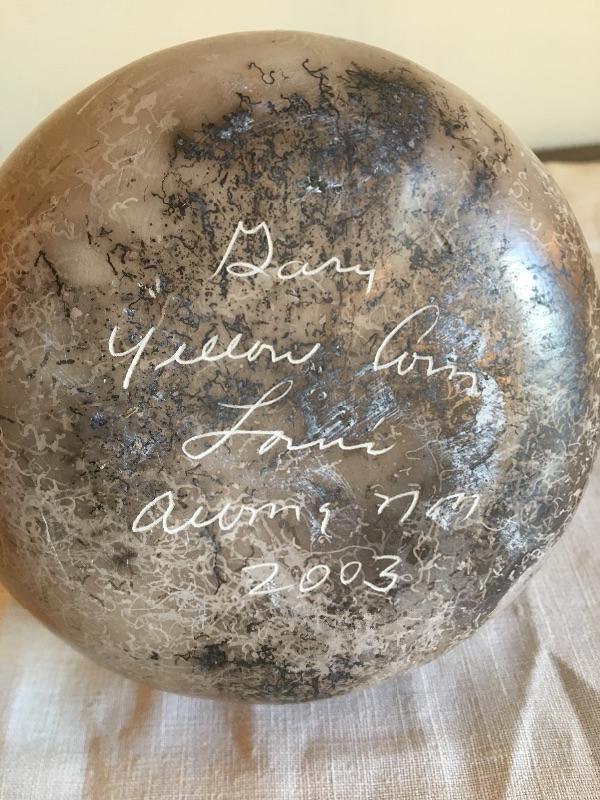 Gary
Yellow Corn
Louis
Acoma, NM
2003